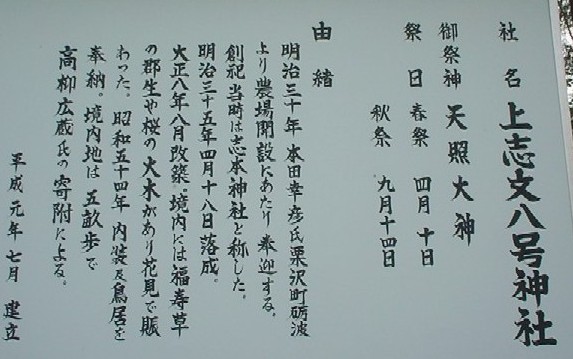 社名 上志文八号神社
御祭神 天照大神
祭日 春祭 四月十日
秋祭 九月十四日
由緒
明治三十年 本田幸彦氏栗沢町砺波
より農場開設にあたり奉迎する。
創祀当時は志本神社と称した。
明治三十五年四月十八日落成。
大正八年八月改築。境内には福寿草
の郡生や桜の大木があり花見で賑
わった。昭和五十四年内装及鳥居を
奉納。境内地は五畝歩で
高柳広蔵氏の寄附による。
平成元年七月 建立